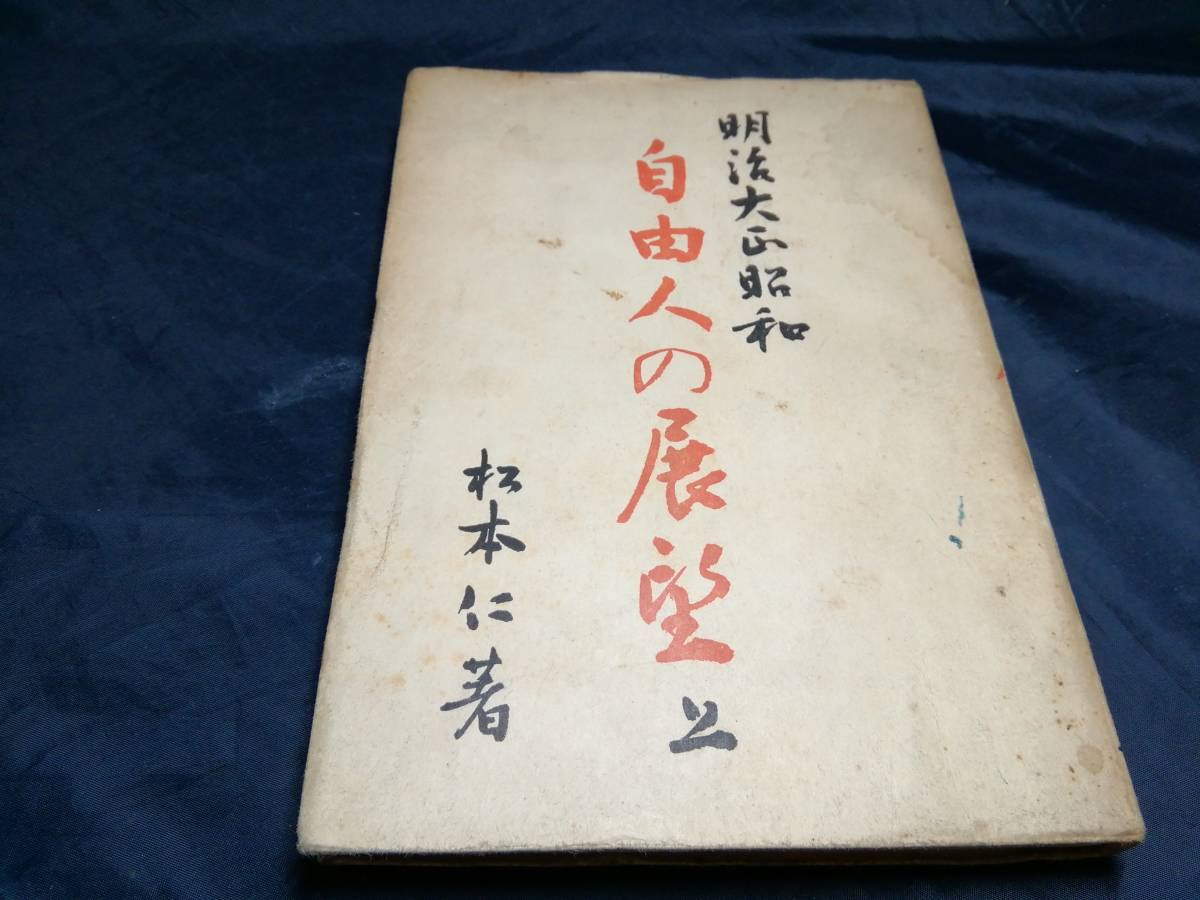 明治大正昭和
自由人の展望
上
松本仁著